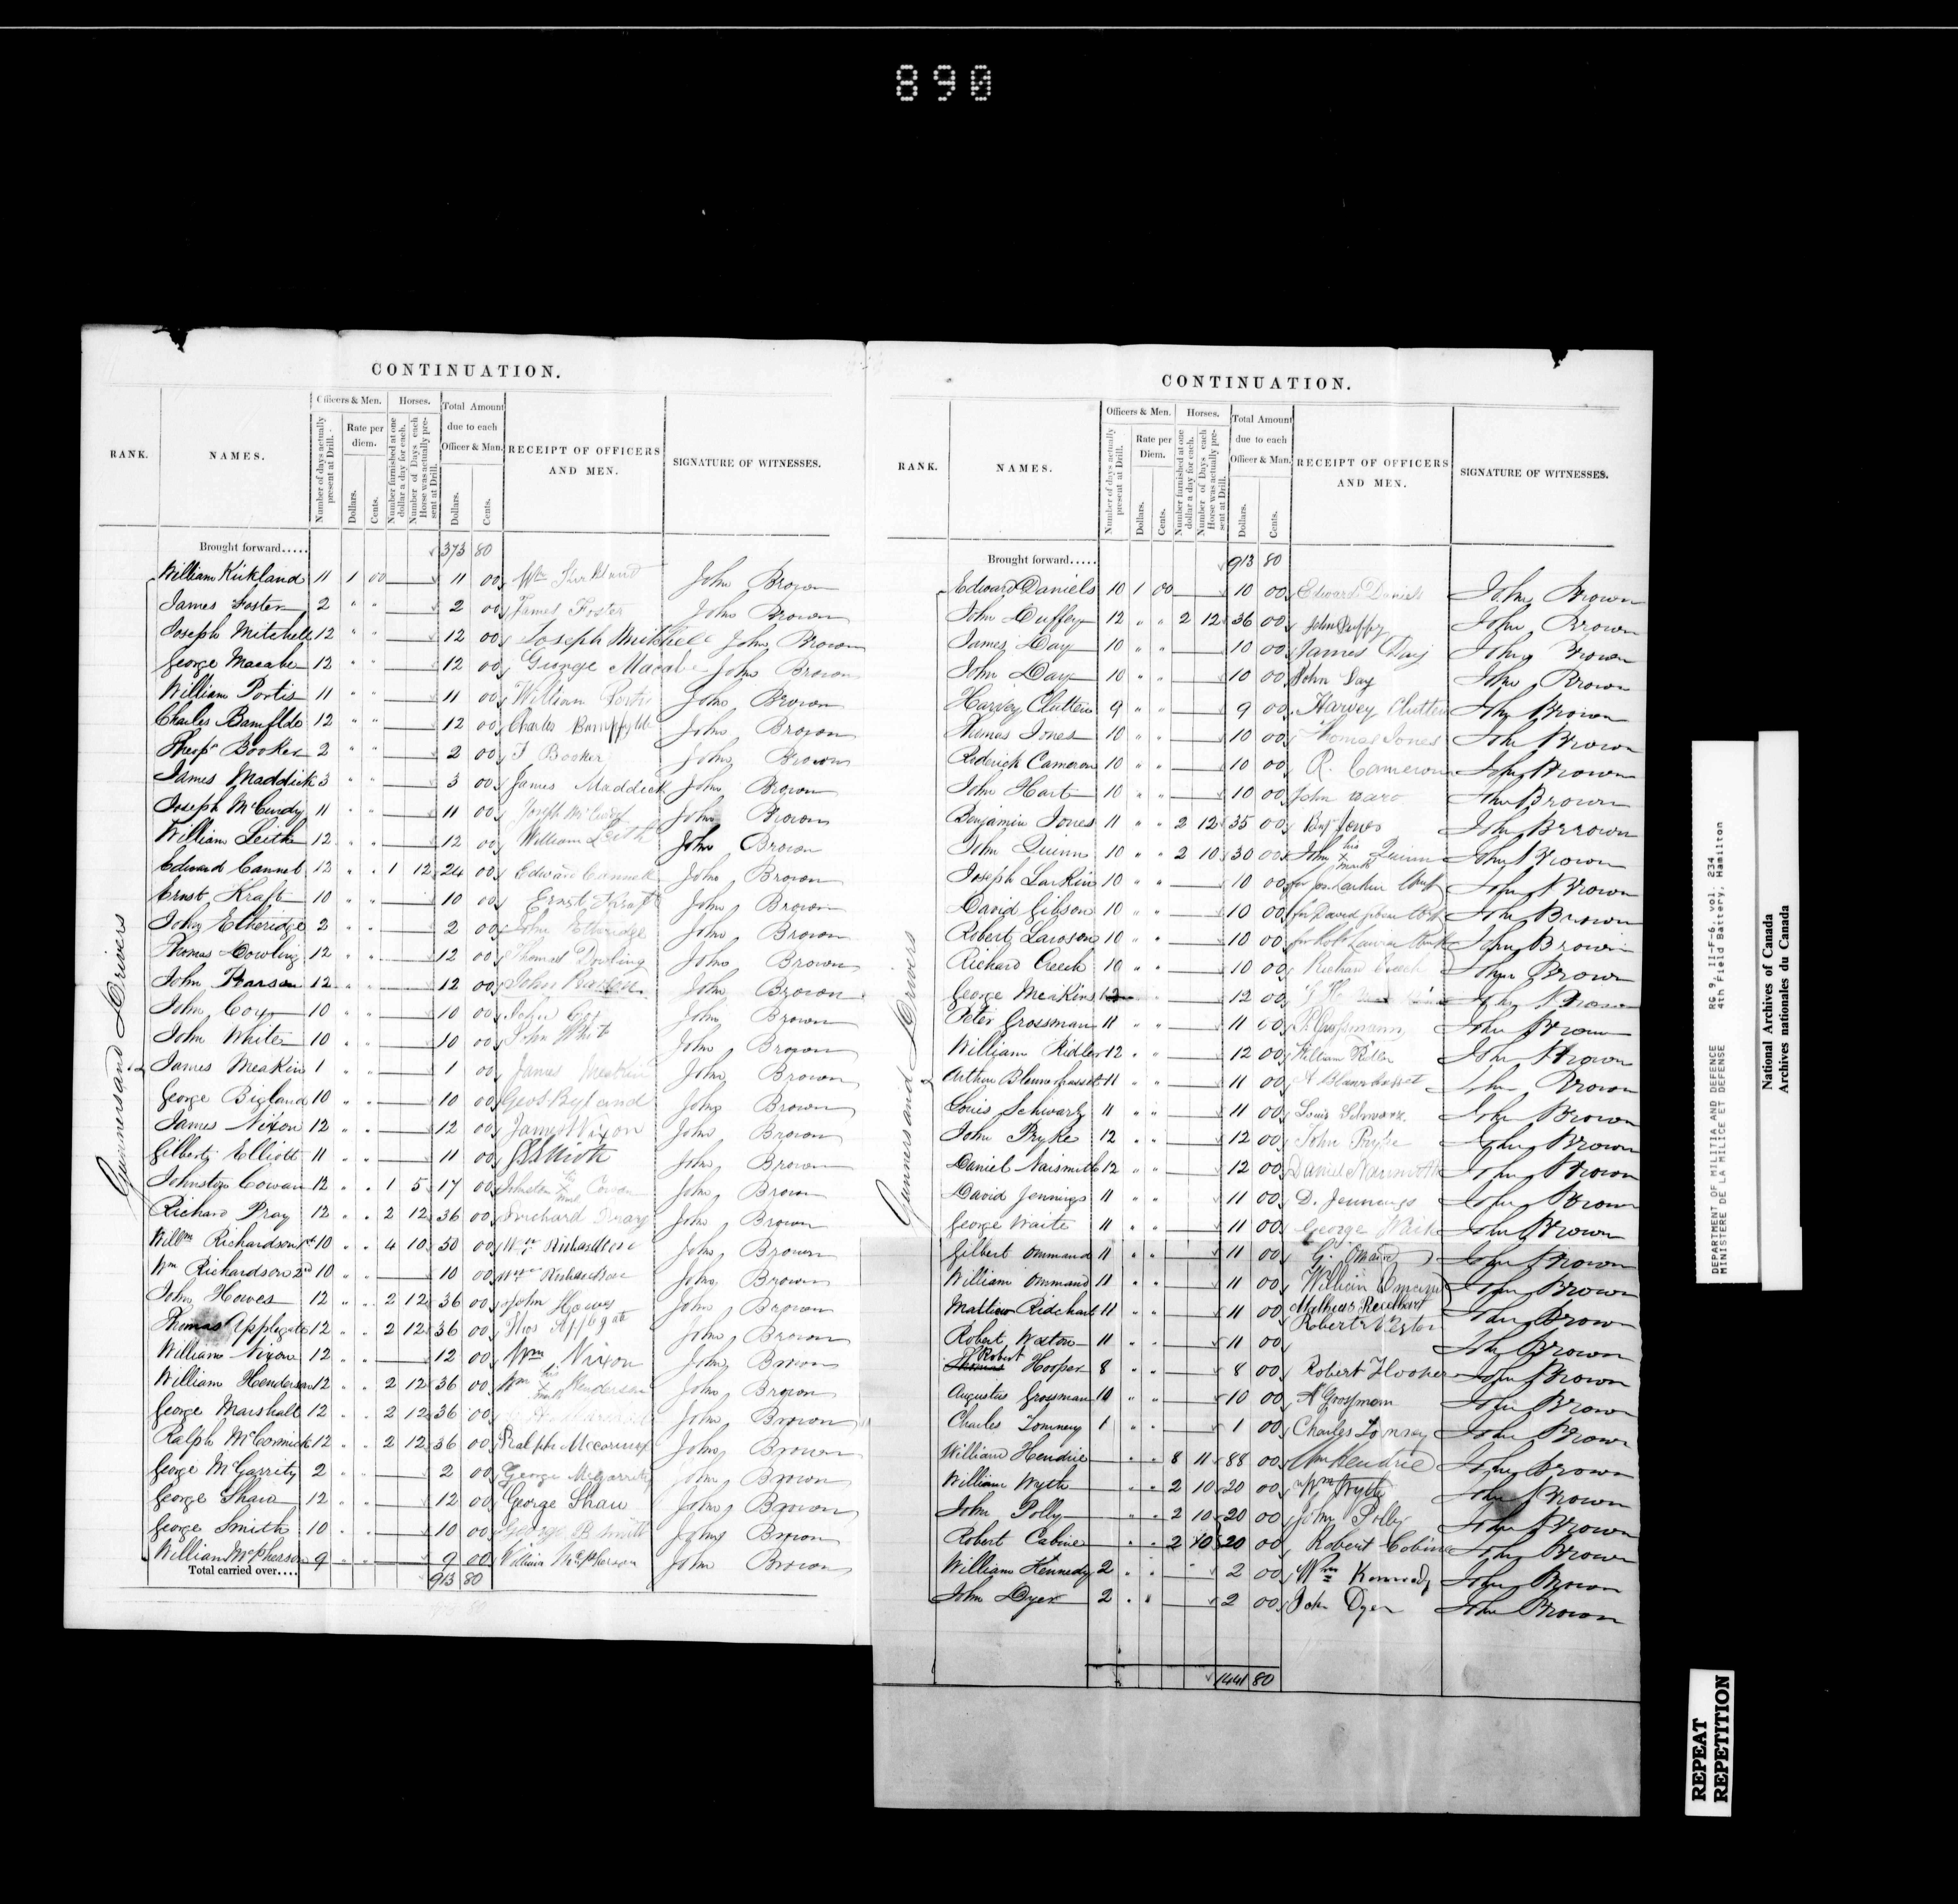 890
CONTINUATION.
RANK. NAMES. Officers & Men. Horses. Total Amount due to each Officer & Man. RECEIPT OF OFFICERS AND MEN. SIGNATURE OF WITNESSES.
Number of days actually present at Drill. Rate per diem. Dollars. Cents. Number furnished at one dollar a day for each. Number of Days each Horse was actually present at Drill. Dollars. Cents.
Brought forward..... 373 80
Gunners and Drivers
William Kirkland 11 1 00 11 00 Wm Kirkland John Brown
James Foster 2 " " 2 00 James Foster John Brown
Joseph Mitchell 12 " " 12 00 Joseph Mitchell John Brown
George Macabe 12 " " 12 00 George Macabe John Brown
William Portis 11 " " 11 00 William Portis John Brown
Charles Bamflde 12 " " 12 00 Charles John Brown
Booker 2 " " 2 00 Booker John Brown
James Maddick 3 " " 3 00 James Maddick John Brown
Joseph McCurdy 11 " " 11 00 Joseph McCurdy John Brown
William Leith 12 " " 12 00 William Leith John Brown
Edward Cannel 12 " " 1 12 24 00 Edward John Brown
Ernst Kraft 10 " " 10 00 Ernst Kraft John Brown
John Etheridge 2 " " 2 00 John Etheridge John Brown
Thomas Dowling 12 " " 12 00 Thomas Dowling John Brown
John 12 " " 12 00 John John Brown
John Coy 10 " " 10 00 John Coy John Brown
John White 10 " " 10 00 John White John Brown
James Meakin 1 " " 1 00 James Meakin John Brown
George Bigland 10 " " 10 00 Geo John Brown
James Nixon 12 " " 12 00 James Nixon John Brown
Gilbert Elliott 11 " " 11 00 John Brown
Johnston Cowan 12 " " 1 5 17 00 Johnston his x mark Cowan John Brown
Richard Pray 12 " " 2 12 36 00 Richard Pray John Brown
Willm Richardson 1st 10 " " 4 10 50 00 Wm Richardson John Brown
Wm Richardson 2nd 10 " " 10 00 Wm Richardson John Brown
John Howes 12 " " 2 12 36 00 John Howes John Brown
Thomas Applegate 12 " " 2 12 36 00 Thos John Brown
William Nixon 12 " " 12 00 Wm Nixon John Brown
William Henderson 12 " " 2 12 36 00 Wm his x mark Henderson John Brown
George Marshall 12 " " 2 12 36 00 John Brown
Ralph McCormick 12 " " 2 12 36 00 Ralph John Brown
George McGarrity 2 " " 2 00 George McGarrity John Brown
George Shaw 12 " " 12 00 George Shaw John Brown
George Smith 10 " " 10 00 George B Smith John Brown
William McPherson 9 " " 9 00 William McPherson John Brown
Total carried over.... 913 80
CONTINUATION.
RANK. NAMES. Officers & Men. Horses. Total Amount due to each Officer & Man. RECEIPT OF OFFICERS AND MEN. SIGNATURE OF WITNESSES.
Number of days actually present at Drill. Rate per Diem. Dollars. Cents. Number furnished at one dollar a day for each. Number of Days each Horse was actually present at Drill. Dollars. Cents.
Brought forward..... 913 80
Gunners and Drivers
Edward Daniels 10 1 00 10 00 Edward Daniels John Brown
John Duffey 12 " " 2 12 36 00 John Duffy John Brown
James Day 10 " " 10 00 James Day John Brown
John Day 10 " " 10 00 John Day John Brown
Harvey Clutten 9 " " 9 00 Harvey Clutten John Brown
Thomas Jones 10 " " 10 00 Thomas Jones John Brown
Roderick Cameron 10 " " 10 00 R. Cameron John Brown
John Hart 10 " " 10 00 John John Brown
Benjamin Jones 11 " " 2 12 35 00 Benj Jones John Brown
John Quinn 10 " " 2 10 30 00 John his x mark Quinn John Brown
Joseph Larkin 10 " " 10 00 for Jos Larkin John Brown
David Gibson 10 " " 10 00 for David John Brown
Robert Lawson 10 " " 10 00 for Robt John Brown
Richard Creech 10 " " 10 00 Richard Creech John Brown
George Meakins 12 12 00 John Brown
Peter Grossman 11 " " 11 00 P. Grossmann John Brown
William Ridler 12 " " 12 00 William John Brown
Arthur Blennerhassett 11 " " 11 00 A John Brown
Louis Schwartz 11 " " 11 00 Louis Schwarz John Brown
John Pryke 12 " " 12 00 John Pryke John Brown
Daniel Naismith 12 " " 12 00 Daniel John Brown
David Jennings 11 " " 11 00 D. Jennings John Brown
George Waite 11 " " 11 00 George Waite John Brown
Gilbert Ommand 11 " " 11 00 G. John Brown
William Ommand 11 " " 11 00 William John Brown
Mattiew Ridchart 11 " " 11 00 Matheus John Brown
Robert Weston 11 " " 11 00 Robert Weston John Brown
Thomas Robert Hooper 8 " " 8 00 Robert Hooper John Brown
Augustus Grossman 10 " " 10 00 A Grossman John Brown
Charles Tommey 1 " " 1 00 Charles John Brown
William Hendrie " " 8 11 88 00 Wm Hendrie John Brown
William Wyth " " 2 10 20 00 Wm Wyth John Brown
John Polly " " 2 10 20 00 John Polly John Brown
Robert Cabine " " 2 10 20 00 Robert Cobine John Brown
William Kennedy 2 " " 2 00 Wm Kennedy John Brown
John Dyer 2 " " 2 00 John Dyer John Brown
1441 80
DEPARTMENT OF MILITIA AND DEFENCE RG 9, II-F-6, vol. 234
MINISTERE DE LA MILICE ET DEFENSE 4th Field Battery, Hamilton
National Archives of Canada
Archives nationales du Canada
REPEAT
REPETITION